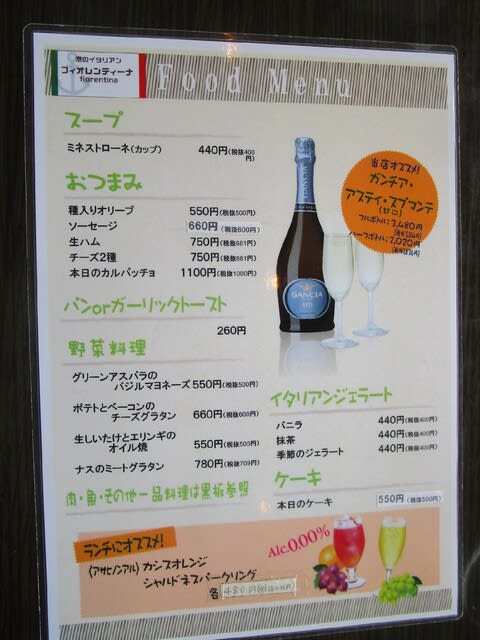 港のイタリアン
フィオレンティーナ
fiorentina
Food Menu
スープ
ミネストローネ(カップ) 440円(税抜400円)
おつまみ
種入りオリーブ 550円(税抜500円)
ソーセージ 660円(税抜600円)
生ハム 750円(税抜681円)
チーズ2種 750円(税抜681円)
本日のカルパッチョ 1100円(税抜1000円)
パンorガーリックトースト
260円
野菜料理
グリーンアスパラの
バジルマヨネーズ 550円(税抜500円)
ポテトとベーコンの
チーズグラタン 660円(税抜600円)
生しいたけとエリンギの
オイル焼 550円(税抜500円)
ナスのミートグラタン 780円(税抜709円)
肉・魚・その他一品料理は黒板参照
当店オススメ!
ガンチア・
アスティ・スプマンテ
(甘口)
フルボトル:3,480円
ハーフボトル:2,020円
GANCIA
ASTI
イタリアンジェラート
バニラ 440円(税抜400円)
抹茶 440円(税抜400円)
季節のジェラート 440円(税抜400円)
ケーキ
本日のケーキ 550円(税抜500円)
ランチにオススメ!
(アサヒノンアル) カシスオレンジ
シャルドネスパークリング
各 480円
Alc.0.00%